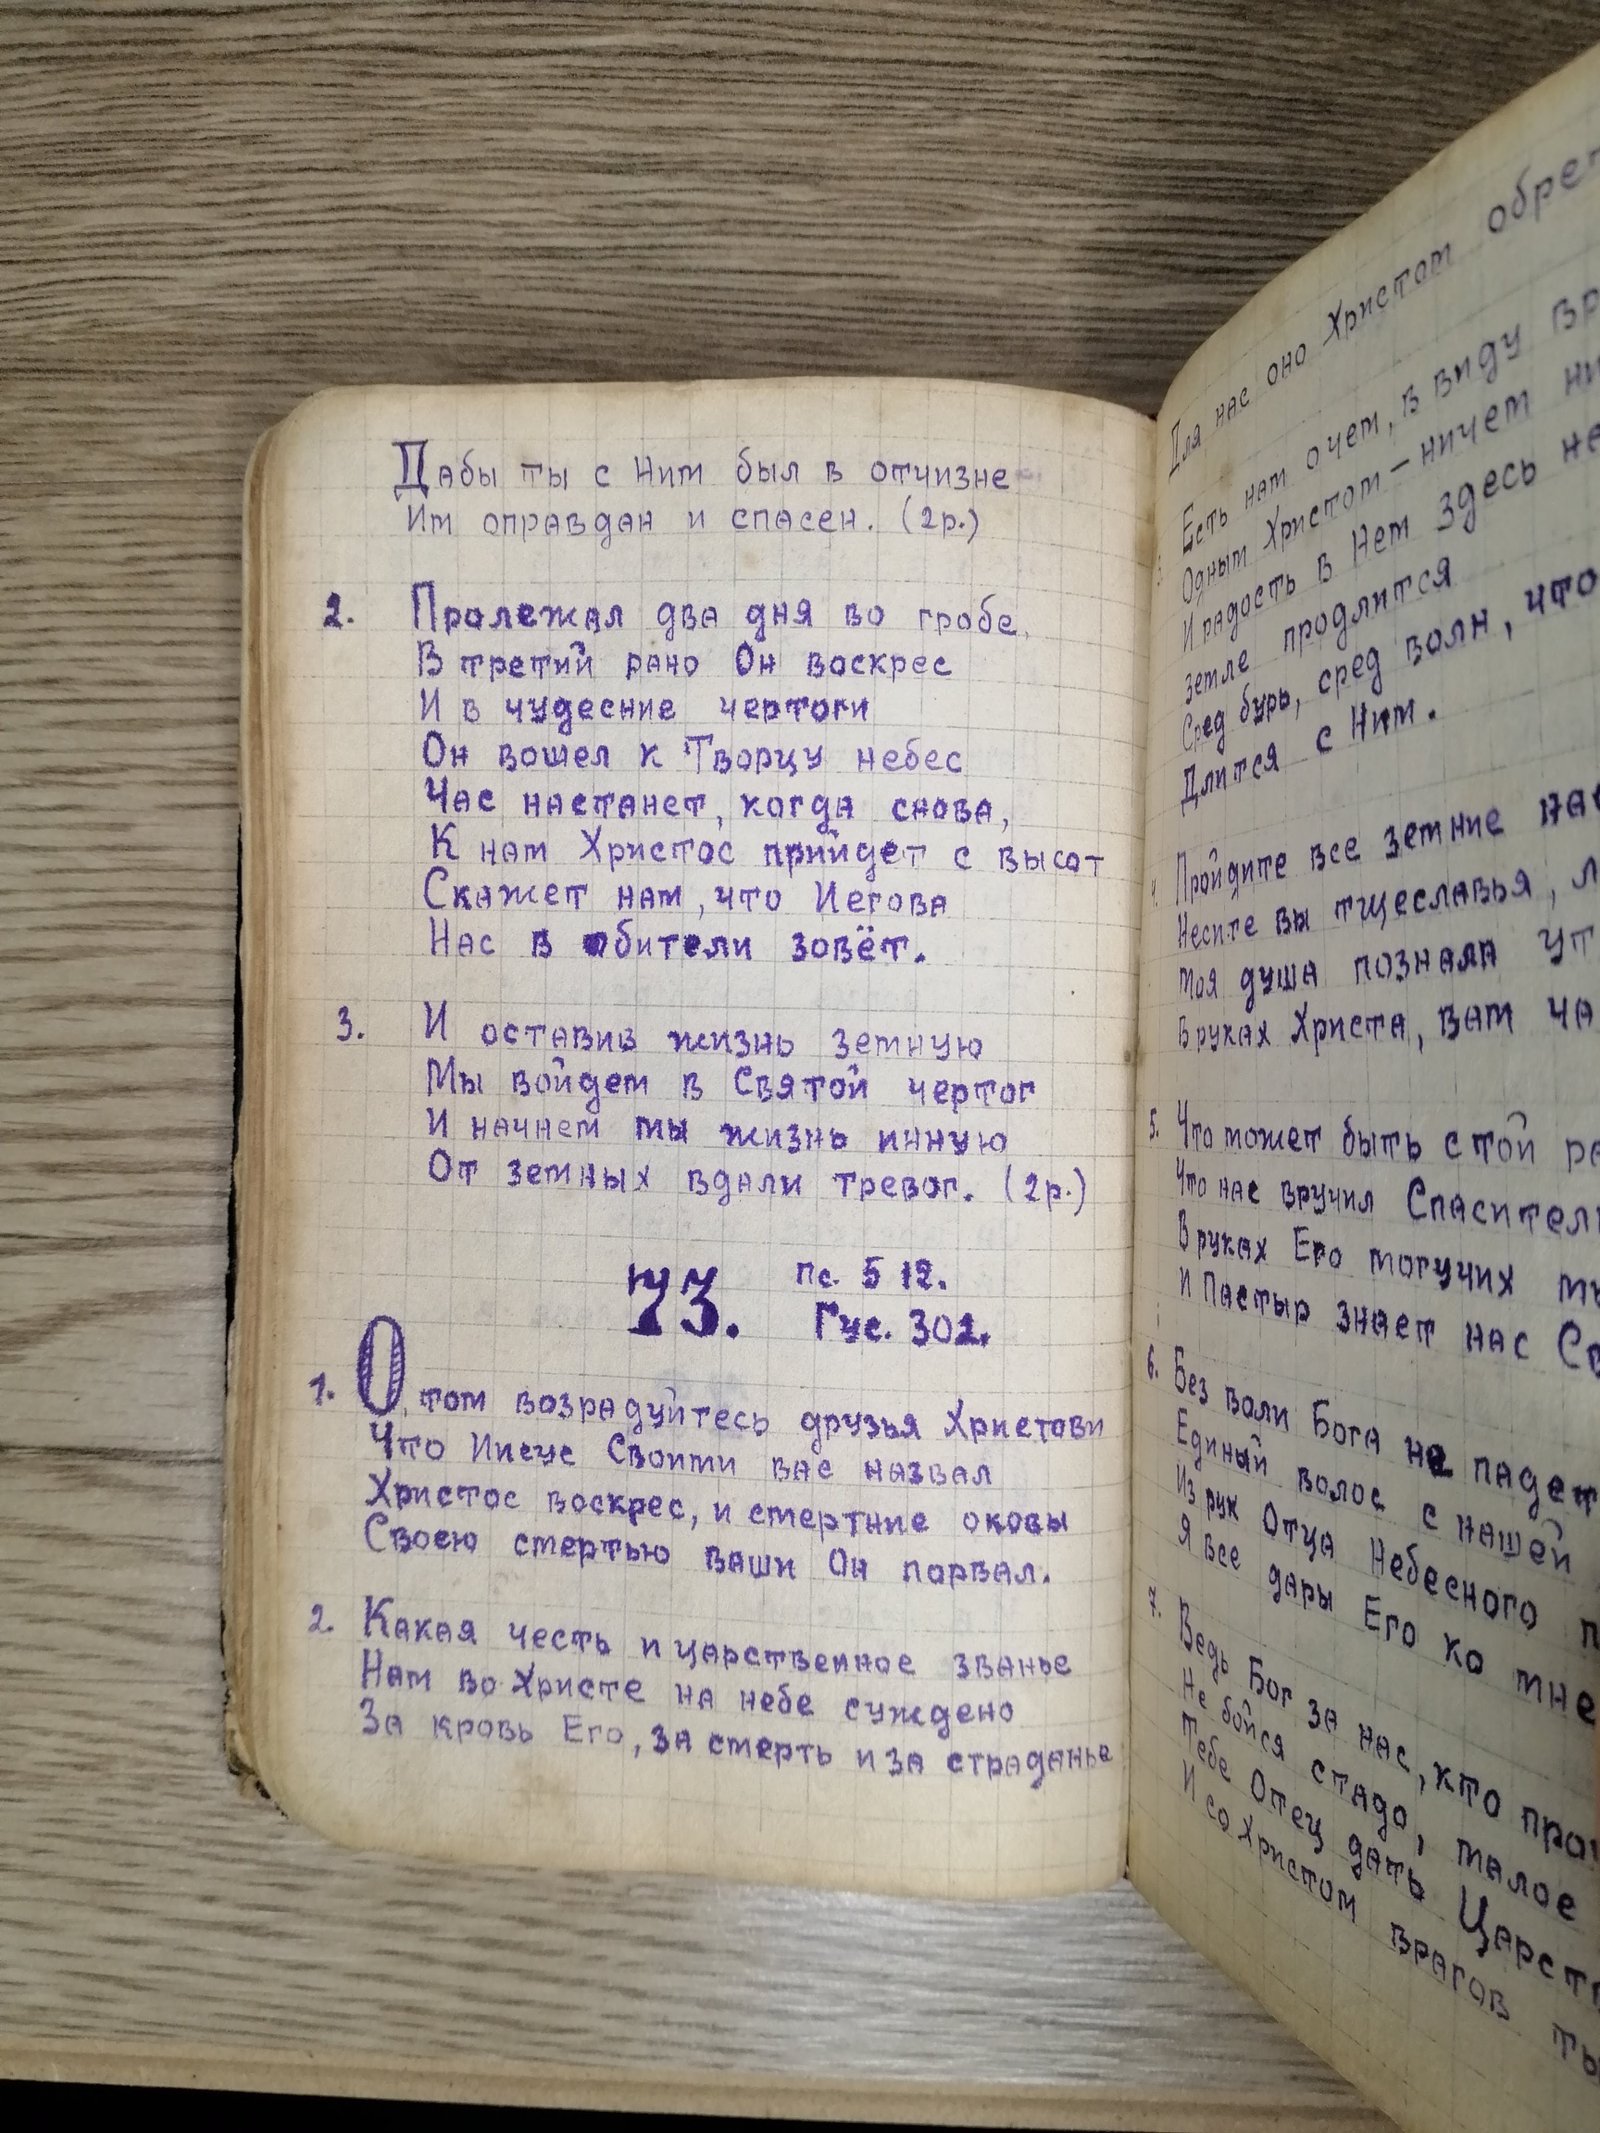 Дабы ты с Ним был в отчизне
Им оправдан и спасен. (2р.)
2. Пролежал два дня во гробе,
В третий рано Он воскрес
И в чудесние чертоги
Он вошел к Творцу небес
Час настанет, когда снова,
К нам Христос прийдет с высот
Скажет нам, что Иегова
Нас в обители зовёт.
3. И оставив жизнь земную
Мы войдем в Святой чертог
И начнем мы жизнь инную
От земных вдали тревог. (2р.)
73. пс. 512.
Гус. 302.
1. О том возрадуйтесь друзья Христови
Что Иисус Своими вас назвал
Христос воскрес, и смертние оковы
Своею смертью ваши Он порвал.
2. Какая честь и царственное званье
Нам во Христе на небе суждено
За кровь Его, за смерть и за страданье
Для нас оно Христом
3. Есть нам о чем, в виду
Одним Христом – ничем
И радость в Нем здесь
земле продлится
Сред бурь, сред волн, что
Длится с Ним.
4. Пройдите все земние
Несите вы тщеславья,
Моя душа познала
В руках Христа, вам
5. Что может быть с той
Что нас вручил
В руках Его могучих
И Пастыр знает нас
6. Без воли Бога не падет
Единый волос с нашей
Из рук Отца Небесного
Я все дары Его ко мне
7. Ведь Бог за нас, кто
Не бойся стадо, малое
Тебе Отец дать
И со Христом врагов